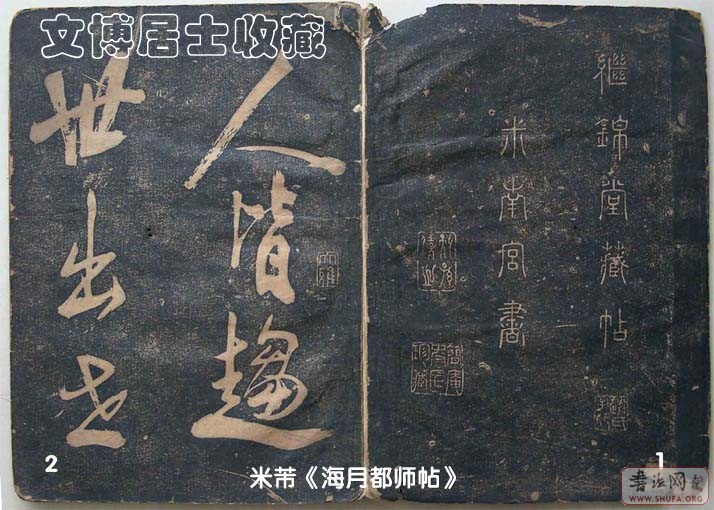 文博居士收藏
继锦堂藏帖
米南宫書
人皆趨
世出世
2
米芾《海月都师帖》
1
书法网
WWW.SHUFA.ORG